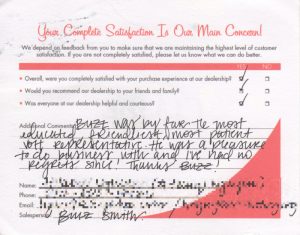 Your Complete Satisfaction Is Our Main Concern!
We depend on feedback from you to make sure that we are maintaining the highest level of customer
satisfaction. If you are not completely satisfied, please let us know what we can do better.
YES NO
• Overall, were you completely satisfied with your purchase experience at our dealership?
• Would you recommend our dealership to your friends and family?
• Was everyone at our dealership helpful and courteous?
Additional Comments: Buzz was by far the most
educated, friendliest, most patient
representative. He was a pleasure
to do business with and I've had no
regrets since! Thanks Buzz!
Name:
Phone:
Email:
Salesperson: Buzz Smith